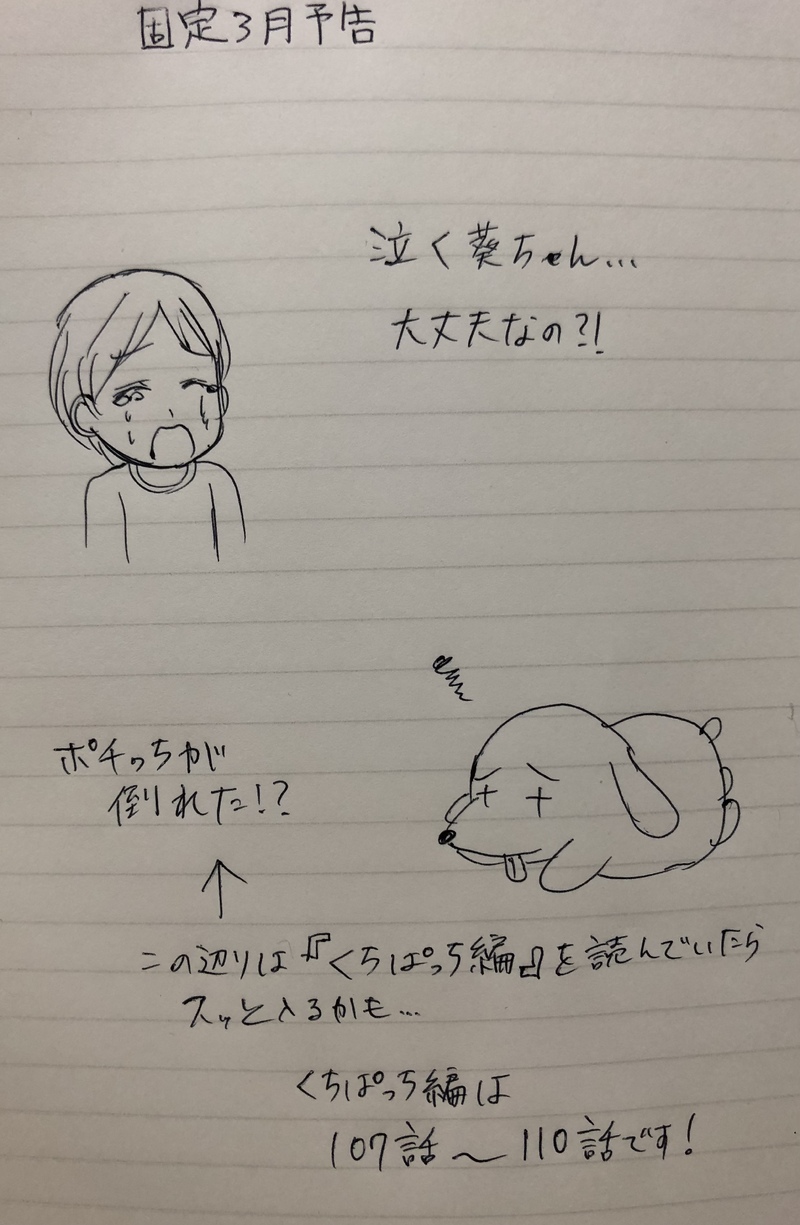 固定3月予告
泣く葵ちゃん…
大丈夫なの?!
ポチっちが
倒れた!?
この辺りは『くちぱっち編』を読んでいたら
スッと入るかも…
くちぱっち編は
107話～110話です!